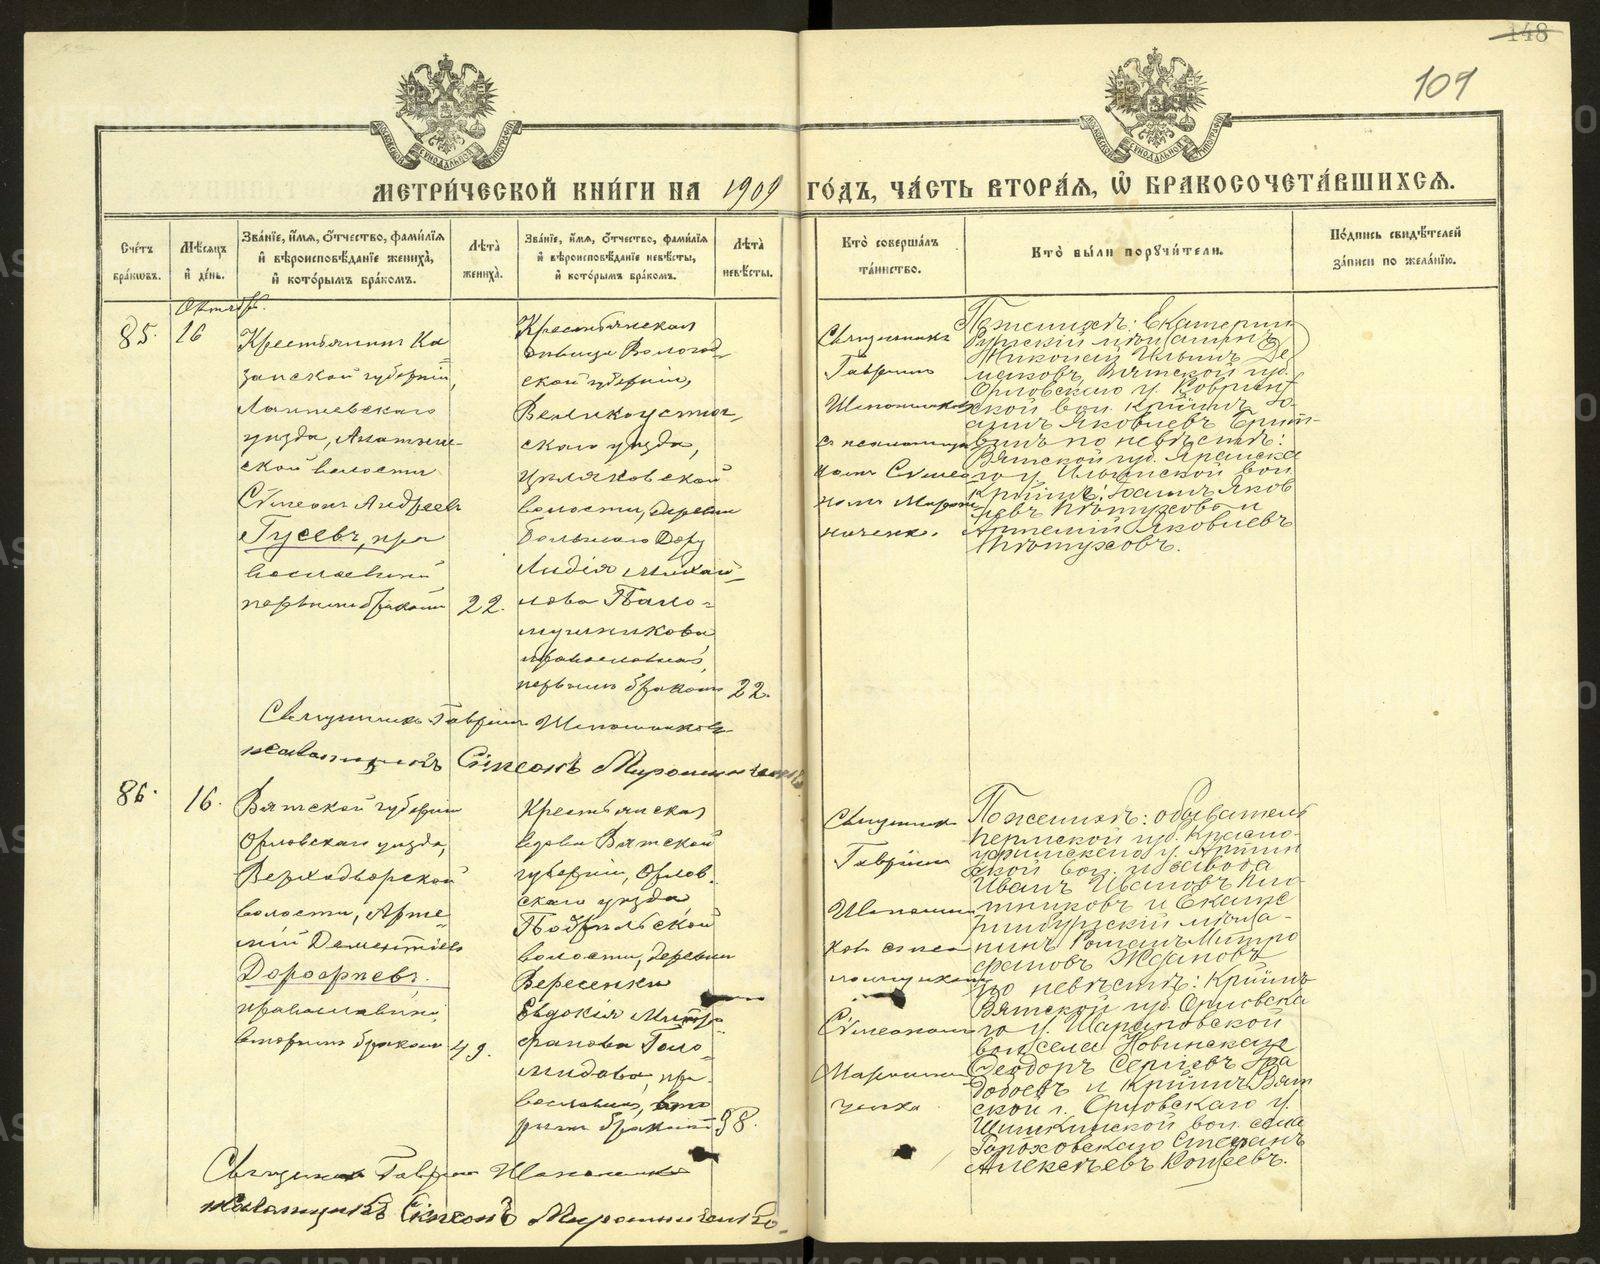 148
109
МЕТРИ́ЧЕСКОЙ КНИ́ГИ НА 1909 ГО́ДЪ, ЧА́СТЬ ВТОРА́Я, Ѡ҆ БРАКОСОЧЕТА́ВШИХСЯ.
Сче́тъ бра́ковъ.
Мѣ́сяцъ и҆ де́нь.
Зва́нїе, и҆́мя, ѻ҆́тчество, фами́лїя и҆ вѣроисповѣ́данїе жениха̀, и҆ кото́рымъ бра́комъ.
Лѣ́та жениха̀.
Зва́нїе, и҆́мя, ѻ҆́тчество, фами́лїя и҆ вѣроисповѣ́данїе невѣ́сты, и҆ кото́рымъ бра́комъ.
Лѣ́та невѣ́сты.
Кто̀ соверша́лъ та́инство.
Кто̀ бы́ли поручи́тели.
По́дпись свидѣ́телей за́писи по жела́нїю.
Октябрь.
85.
16
Крестьянинъ Ка
занской губерніи,
Лаишевскаго
уѣзда,
ской волости
Сѵмеонъ Андреевъ
Гусевъ, пра
вославный
первымъ бракомъ
22.
Крестьянская
дѣвица Вологод-
ской губерніи,
Великоустюг-
скаго уѣзда,
волости, деревни
Большаго Двору
Лидія Михай-
лова Пало-
мушникова
православная,
первымъ бракомъ
22.
Священникъ
Гавріилъ
Шапошниковъ
съ псаломщи
комъ Сѵмео
номъ Мирош
ниченко.
По женихѣ: Екатерин
бургскій мѣщанинъ
Николай Ильинъ Де
маковъ Вятской губ.
Орловскаго у.
ской вол. кр-нинъ Іо
аннъ Яковлевъ
по невѣстѣ:
Вятской губ. Яранска
го у. Ильинской вол.
кр-нинъ: Іоаннъ Яков
левъ Пѣтуховъ и
Артемій Яковлевъ
Пѣтуховъ.
Священникъ Гавріилъ Шапошниковъ
псаломщикъ Сѵмеонъ Мирошниченко
86.
16.
Вятской губерніи
Орловскаго уѣзда,
Верходворской
волости, Арте
мій Дементіевъ
Дорофѣевъ.
православный,
вторымъ бракомъ
49.
Крестьянская
вдова Вятской
губерніи, Орлов-
скаго уѣзда
Подрѣльской
волости, деревни
Вересенки
Евдокія Митро
фанова Голо-
мидова, пра-
вославная, вто
рымъ бракомъ
38.
Священникъ
Гавріилъ
Шапошни
ковъ съ пса
ломщикомъ
Сѵмеономъ
Мирошни
ченко
По женихѣ: обыватель
Пермской губ. Красно-
уфимскаго у. Артин
ской вол. и завода
Иванъ Ивановъ Пло
тниковъ и Екате
ринбургскій мѣща-
нинъ Романъ Митро
фановъ Ждановъ
по невѣстѣ: кр-нинъ
Вятской губ. Орловска
го у. Шарановской
вол. села Новинскаго
Ѳеодоръ Сергіевъ
и кр-нинъ Вят
ской г. Орловскаго у.
Шишкинской вол. села
Гороховскаго Стефанъ
Алексѣевъ
Священникъ Гавріилъ Шапошниковъ
псаломщикъ Сѵмеонъ Мирошниченко